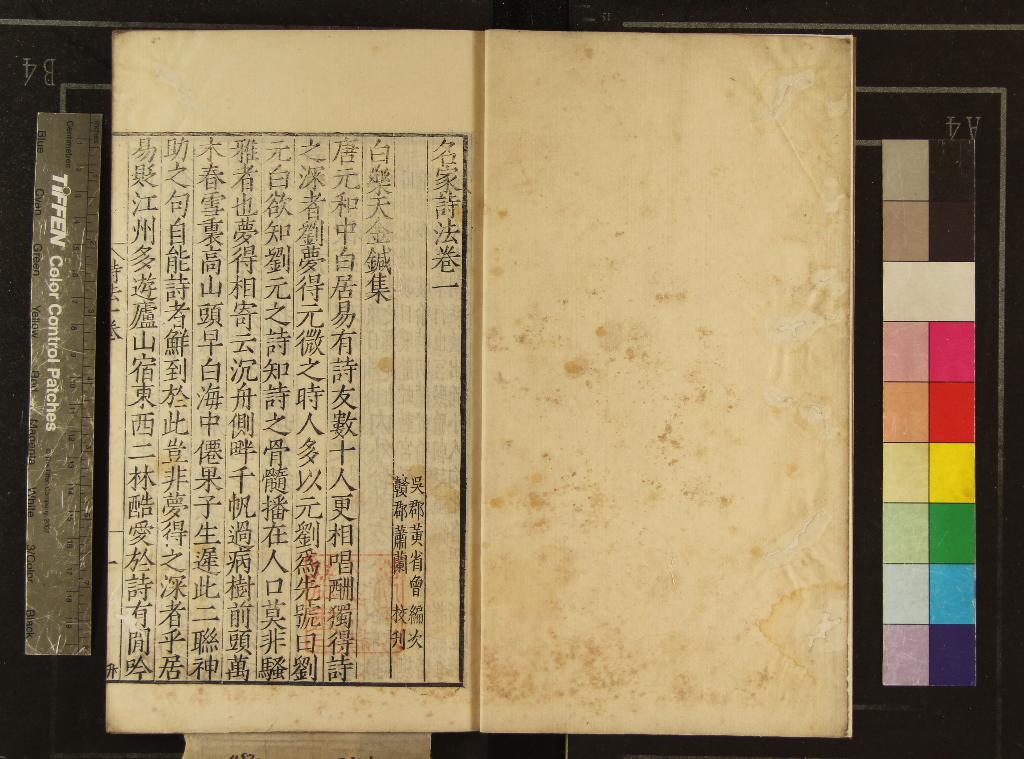 名家詩法卷一
吳郡黃省曾編次
贑郡蕭蘭校刋
白樂天金鍼集
唐元和中白居易有詩友數十人更相唱酬獨得詩
之深者劉夢得元微之時人多以元劉爲先號曰劉
元白欲知劉元之詩知詩之骨髓播在人口莫非騷
雅者也夢得相寄云沉舟側畔千帆過病樹前頭萬
木春雪裏高山頭早白海中僊果子生遲此二聯神
助之句自能詩者鮮到於此豈非夢得之深者乎居
易貶江州多遊廬山宿東西二林酷愛於詩有閒吟
詩法一卷
一
B4
A4
TIFFEN Color Control Patches
Centimetres
Inches
Blue
Cyan
Green
Yellow
Red
Magenta
White
3/Color
Black